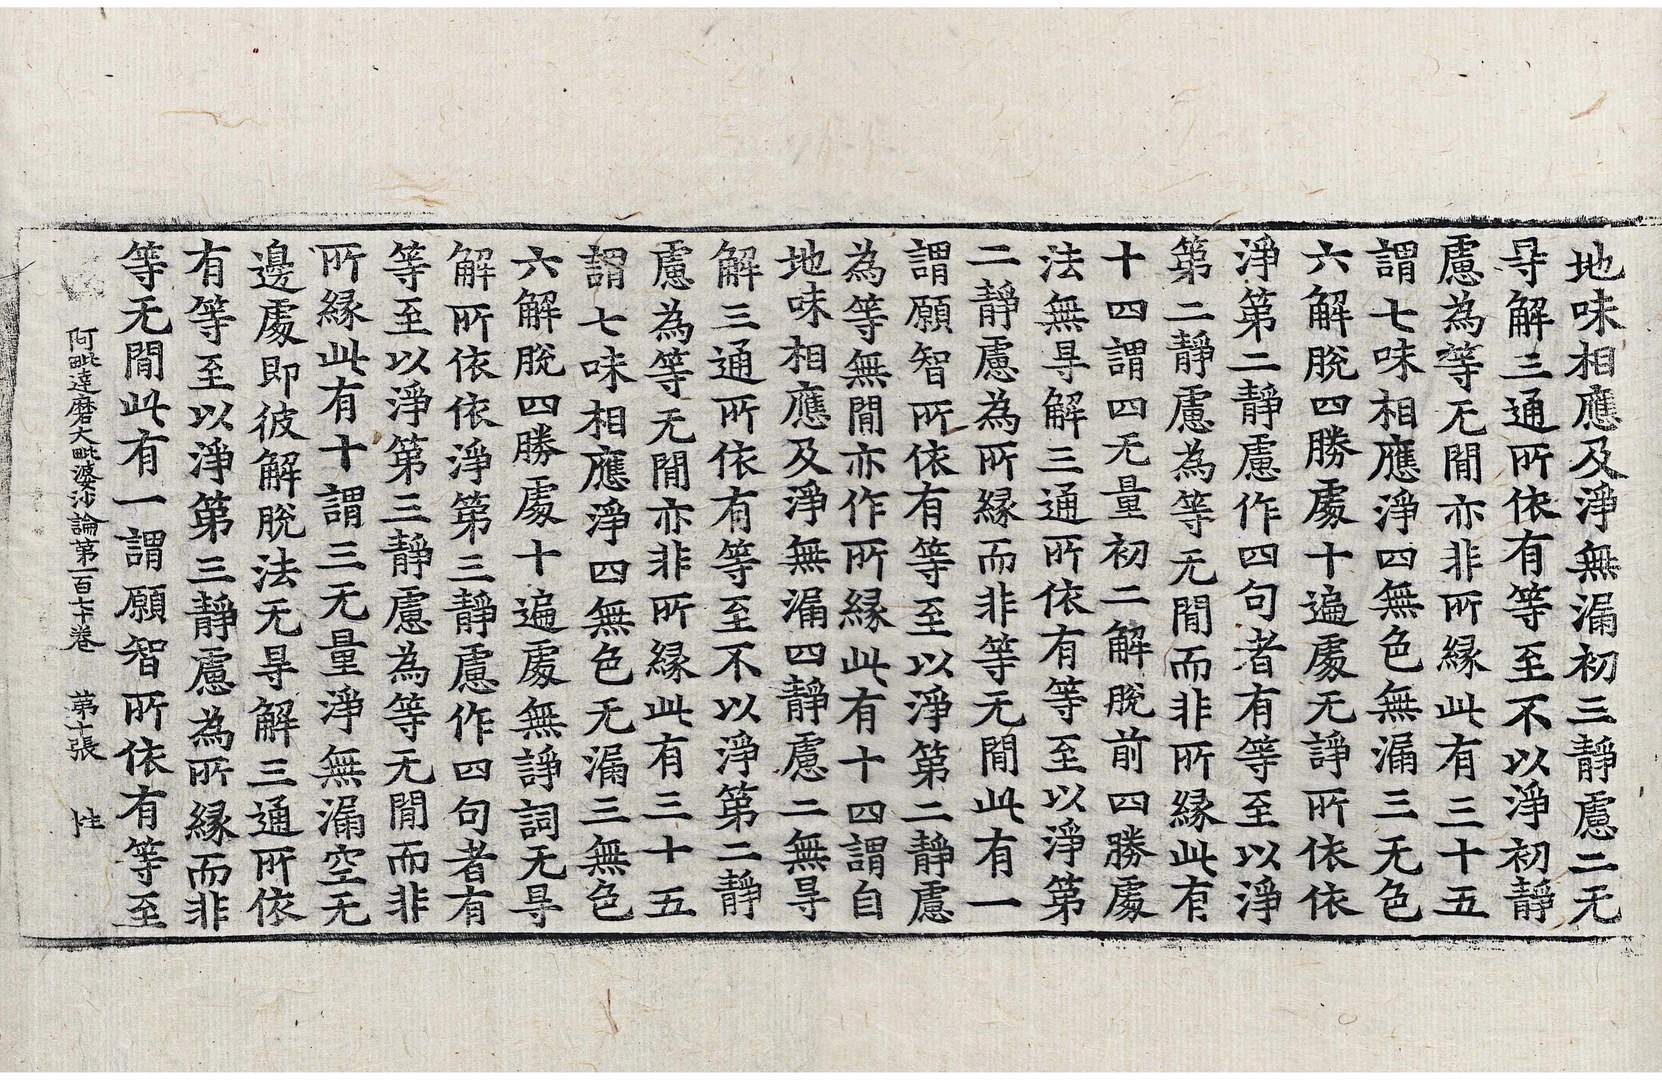 地味相應及淨無漏初三靜慮二无
㝵解三通所依有等至不以淨初靜
慮為等无閒亦非所縁此有三十五
謂七味相應淨四無色無漏三无色
六解脫四勝處十遍處无諍所依依
淨第二靜慮作四句者有等至以淨
第二靜慮為等无閒而非所縁此有
十四謂四无量初二解脫前四勝處
法無㝵解三通所依有等至以淨第
二靜慮為所縁而非等无閒此有一
謂願智所依有等至以淨第二靜慮
為等無閒亦作所縁此有十四謂自
地味相應及淨無漏四靜慮二無㝵
解三通所依有等至不以淨第二靜
慮為等无閒亦非所縁此有三十五
謂七味相應淨四無色无漏三無色
六解脫四勝處十遍處無諍詞无㝵
解所依依淨第三靜慮作四句者有
等至以淨第三靜慮為等无閒而非
所縁此有十謂三无量淨無漏空无
邊處即彼解脫法无㝵解三通所依
有等至以淨第三靜慮為所縁而非
等无閒此有一謂願智所依有等至
阿毗達磨大毗婆沙論第一百七十卷 第十張 性